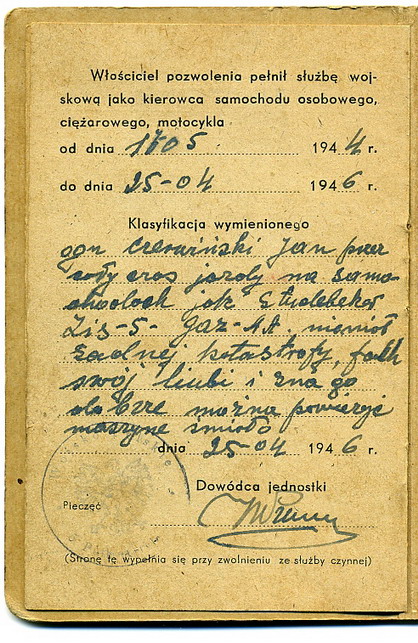 Właściciel pozwolenia pełnił służbę woj-
skową jako kierowca samochodu osobowego,
ciężarowego, motocykla
od dnia 1705 1944 r.
do dnia 25-04 1946 r.
Klasyfikacja wymienionego
ogn Czerwiński Jan przez
cały czas jazdy na samo-
chodach jak Studebeker
Zis-5- gaz-AA. niemiał
żadnej katastrofy, fach
swój liubi i zna go
dobrze można powierzyć
maszyne śmiało
dnia 25-04 1946 r.
Dowódca jednostki
Pieczęć
(Stronę tę wypełnia się przy zwolnieniu ze służby czynnej)